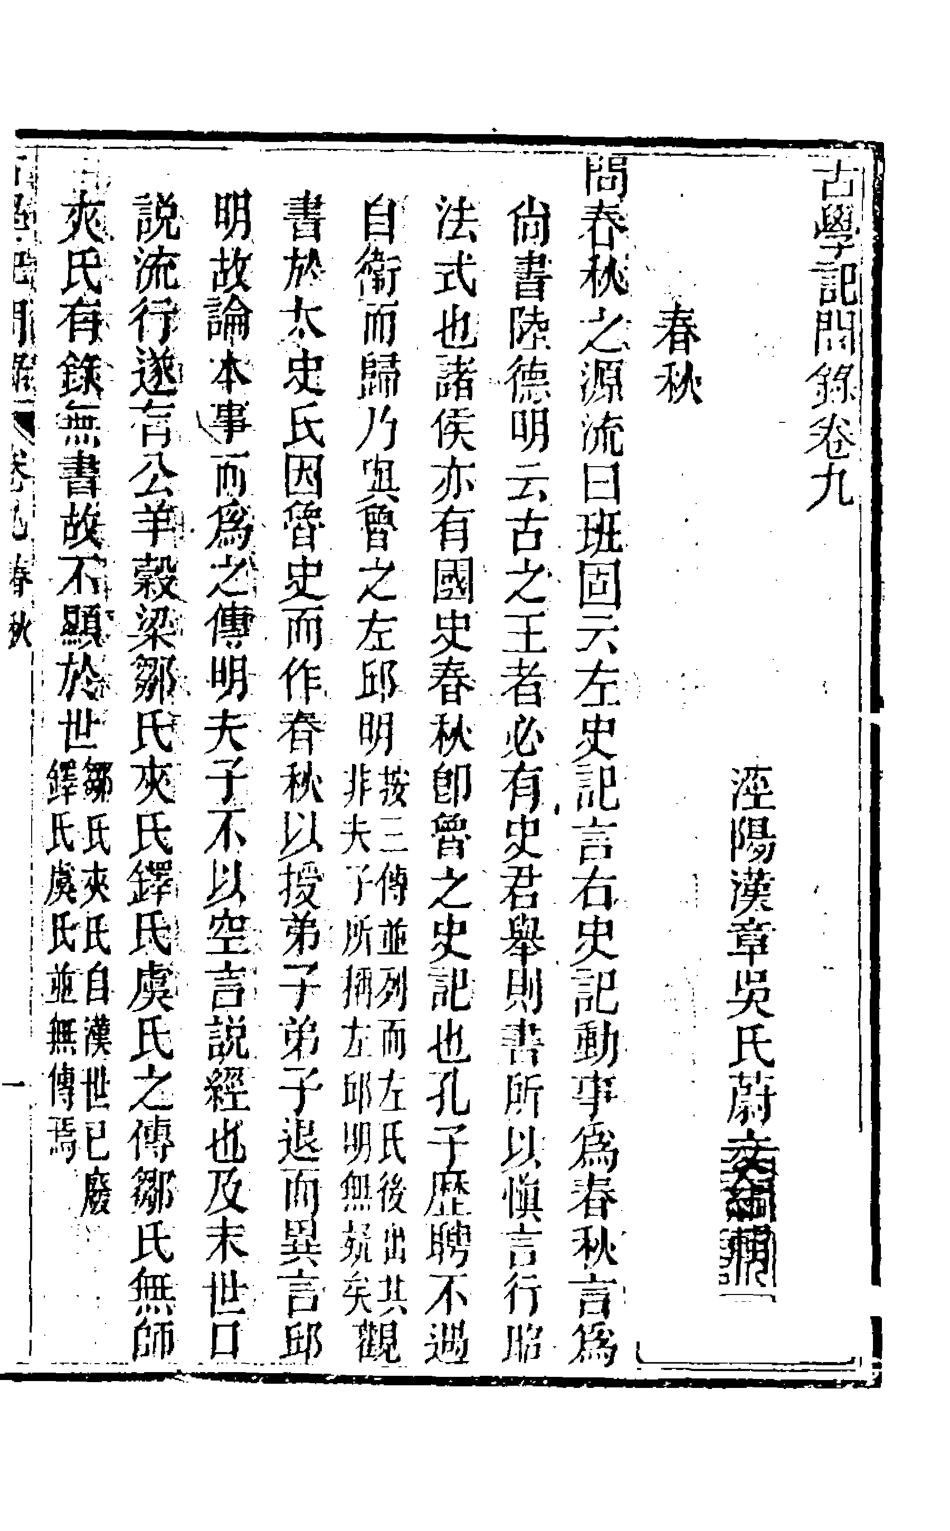 古學記問錄卷九
涇陽漢章吳氏蔚文
春秋
問春秋之源流曰班固云左史記言右史記動事為春秋言為
尚書陸德明云古之王者必有史君舉則書所以慎言行昭
法式也諸侯亦有國史春秋卽魯之史記也孔子歷聘不遇
自衛而歸乃與魯之左邱明按三傳並列而左氏後出其非夫子所稱左邱明無疑矣觀
書於太史氏因魯史而作春秋以授弟子弟子退而異言邱
明故論本事而爲之傳明夫子不以空言說經也及末世口
說流行遂有公羊穀梁鄒氏夾氏鐸氏虞氏之傳鄒氏無師
夾氏有錄無書故不顯於世鄒氏夾氏自漢世已廢鐸氏虞氏並無傳焉
卷九 春秋 一